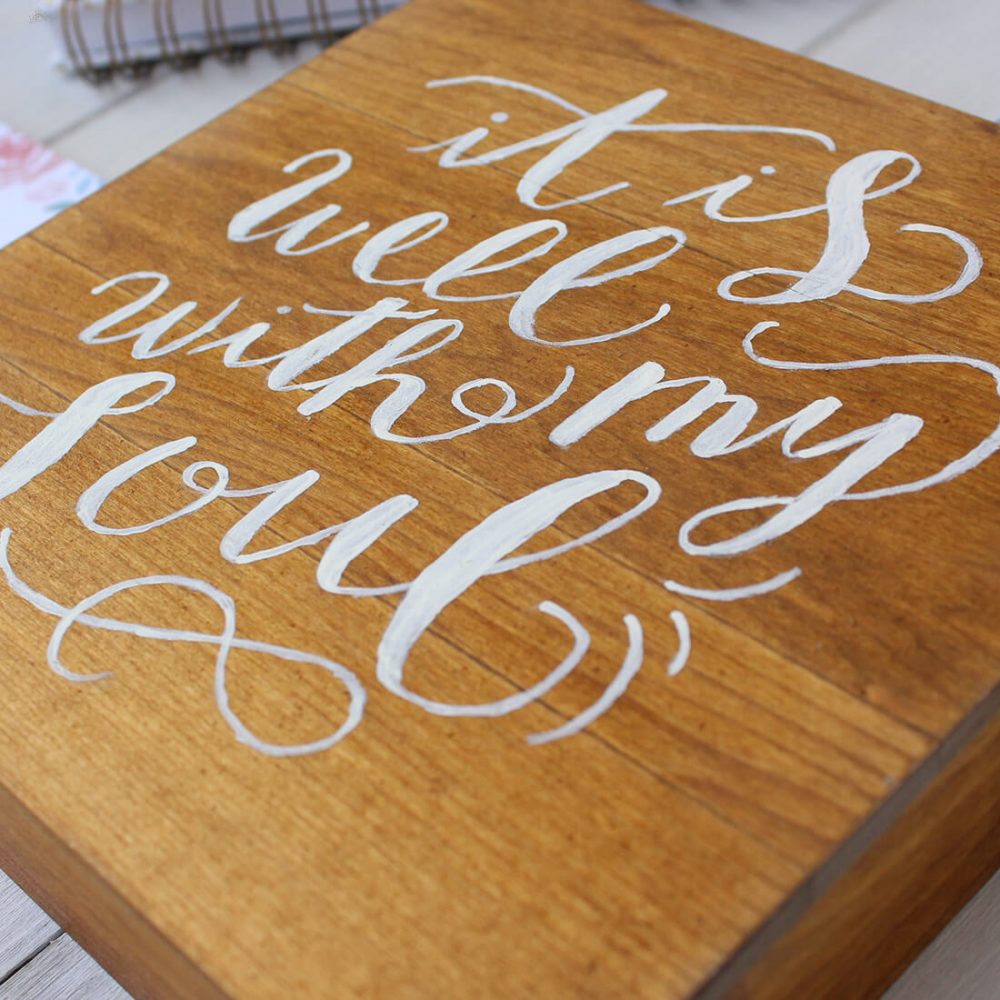 it is
well
with my
soul